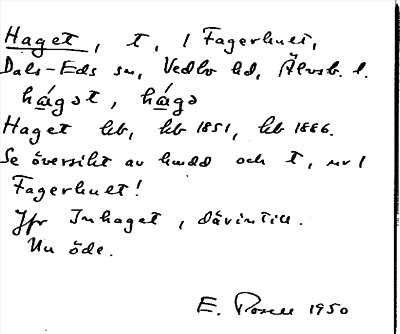 Haget, t, / Fagerhult,
Dals-Eds sn, Vedbo hd, Älvsb. l.
há̱gət, há̱gə
Haget hb, hb 1851, hb 1866.
Se översikt av hmdd och t, ur /
Fagerhult!
Jfr Inhaget, därintill.
Nu öde.
E. 1950